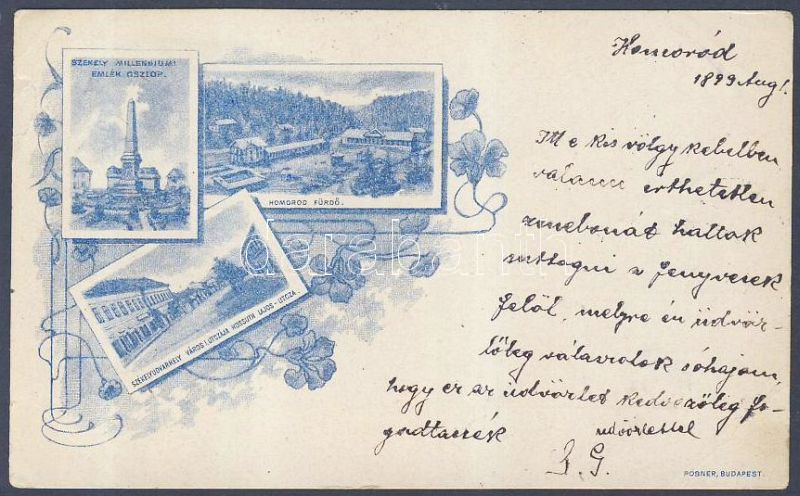 SZÉKELY MILLENNIUMI
EMLÉK OSZLOP.
HOMOROD FÜRDŐ.
SZÉKELYUDVARHELY VÁROS UTCZÁJA KOSSUTH LAJOS-UTCZA.
Homoród
1899 Aug 1.
E kis völgy kebelben
valami érthetetlen
zenebonát hallok
suttogni a fenyvesek
felől, melyre én üdvöz-
lőleg válaszolok sóhajom,
hogy ez az üdvözlet kedvezőleg fo-
gadtassék
üdvözlettel
G.
POSNER, BUDAPEST.
darabanth